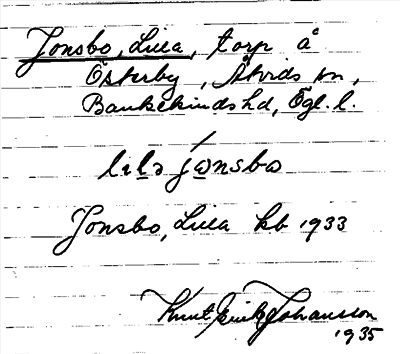 Jonsbo, Lilla, torp å
Österby, Åtvids sn,
Bankekinds hd, Ögl. l.
lilɔ jɷnsbɷ
Jonsbo, Lilla kb 1933
Knut Erik Johansson
1935